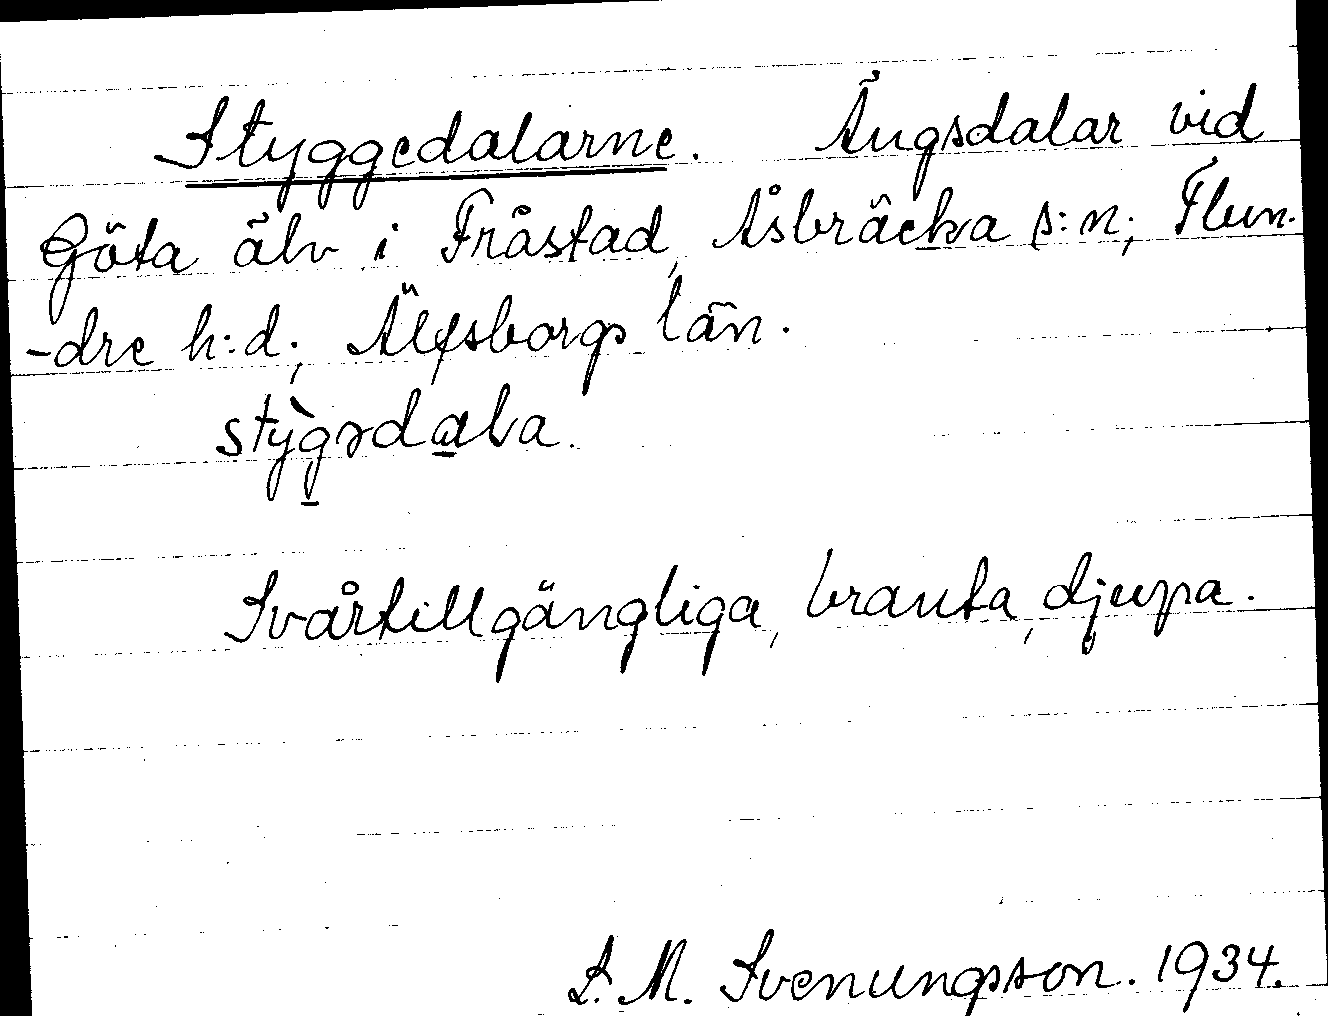 Styggedalarne. Ängsdalar vid
Göta älv i Fråstad, Åsbräcka s:n; Flun-
-dre h:d; Älfsborgs län.
stỳgədala.
Svårtillgängliga, branta, djupa.
L. M. Svenungsson. 1934.